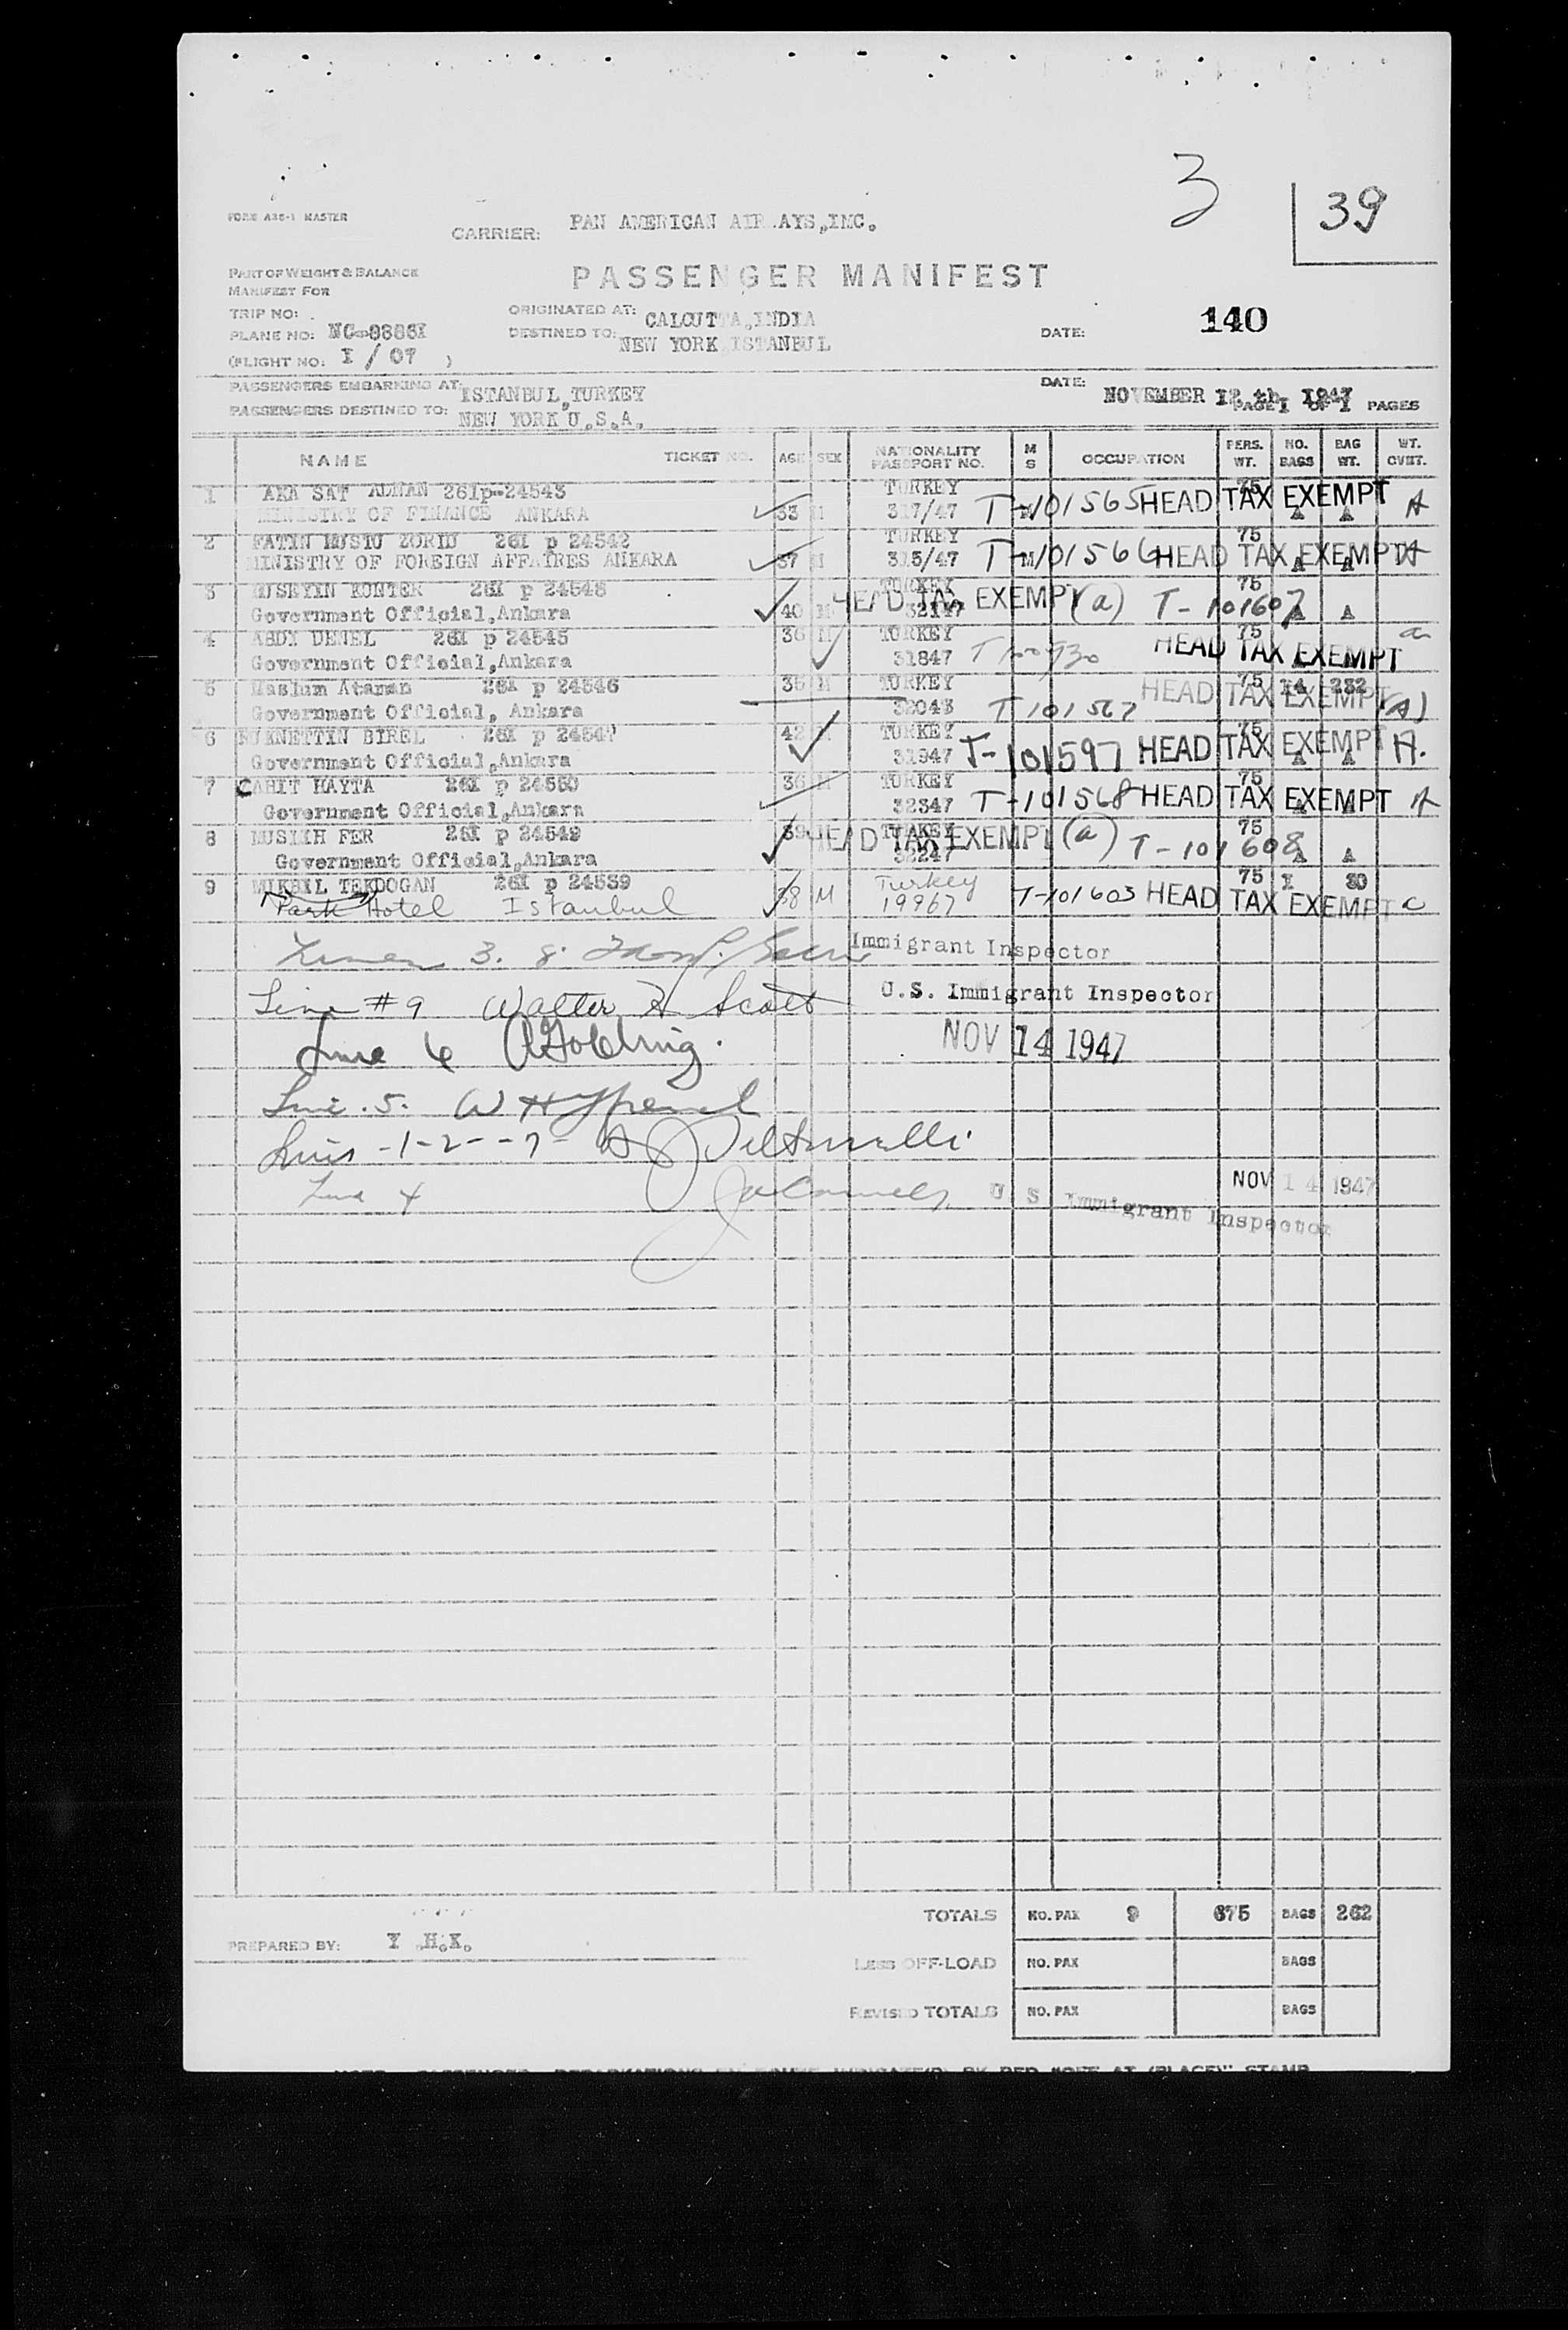 3
39
FORM A36-1 MASTER
CARRIER: PAN AMERICAN AIR.AYS,INC.
PART OF WEIGHT & BALANCE
MANIFEST FOR
PASSENGER MANIFEST
TRIP NO:
ORIGINATED AT: CALCUTTA,INDIA
140
PLANE NO: NC-8886I
DESTINED TO: NEW YORK ISTANBUL
DATE:
(FLIGHT NO: I / 07 )
PASSENGERS EMBARKING AT: ISTANBUL,TURKEY
DATE: NOVEMBER I2 th I947
PASSENGERS DESTINED TO: NEW YORK U.S.A.
PAGE I OF I PAGES
NAME TICKET NO. AGE SEX NATIONALITY PASSPORT NO. M S OCCUPATION PERS. WT. NO. BAGS BAG WT. WT. CVHT.
1 AKA SAT ALMAN 26Ip-24543 TURKEY 75
MINISTRY OF FINANCE ANKARA 33 M 317/47 T-101565 HEAD TAX EXEMPT A
2 FATIN RUSTU ZORLU 26I p 24542 TURKEY 75
MINISTRY OF FOREIGN AFFAIRES ANKARA 37 M 315/47 M T-101566 HEAD TAX EXEMPT A
3 HUSEYIN KONTER 26I p 24548 TURKEY 75
Government Official,Ankara 40 M 32147 HEAD TAX EXEMPT (a) T-101607 A A
4 ABDI UENEL 26I p 24545 36 M TURKEY 75 a
Government Official,Ankara 31847 HEAD TAX EXEMPT
5 Maslum Ataman 26I p 24546 35 M TURKEY 75 I4 232
Government Official, Ankara 32043 T-101567 HEAD TAX EXEMPT (A)
6 RUKNETTIN BIREL 26I p 24547 42 M TURKEY 75
Government Official,Ankara 31947 T-101597 HEAD TAX EXEMPT A.
7 CAHIT HAYTA 26I p 24550 36 M TURKEY 75
Government Official,Ankara 32347 T-101568 HEAD TAX EXEMPT A
8 MUSLIH FER 26I p 24549 39 M TURKEY 75
Government Official,Ankara 32247 HEAD TAX EXEMPT (a) T-101608 A A
9 MIKBIL TEKDOGAN 26I p 24539 Turkey 75 I 30
Park Hotel Istanbul 38 M 19967 T-101603 HEAD TAX EXEMPT C
3. 8. Immigrant Inspector
Line #9 Walter A Scott U.S. Immigrant Inspector
Line 6 NOV 14 1947
Line. 5.
Lines -1-2--7-
NOV 14 1947
Line 4 U S Immigrant Inspector
TOTALS NO. PAX 9 675 BAGS 262
PREPARED BY: Y .H.K.
LESS OFF-LOAD NO. PAX BAGS
REVISED TOTALS NO. PAX BAGS